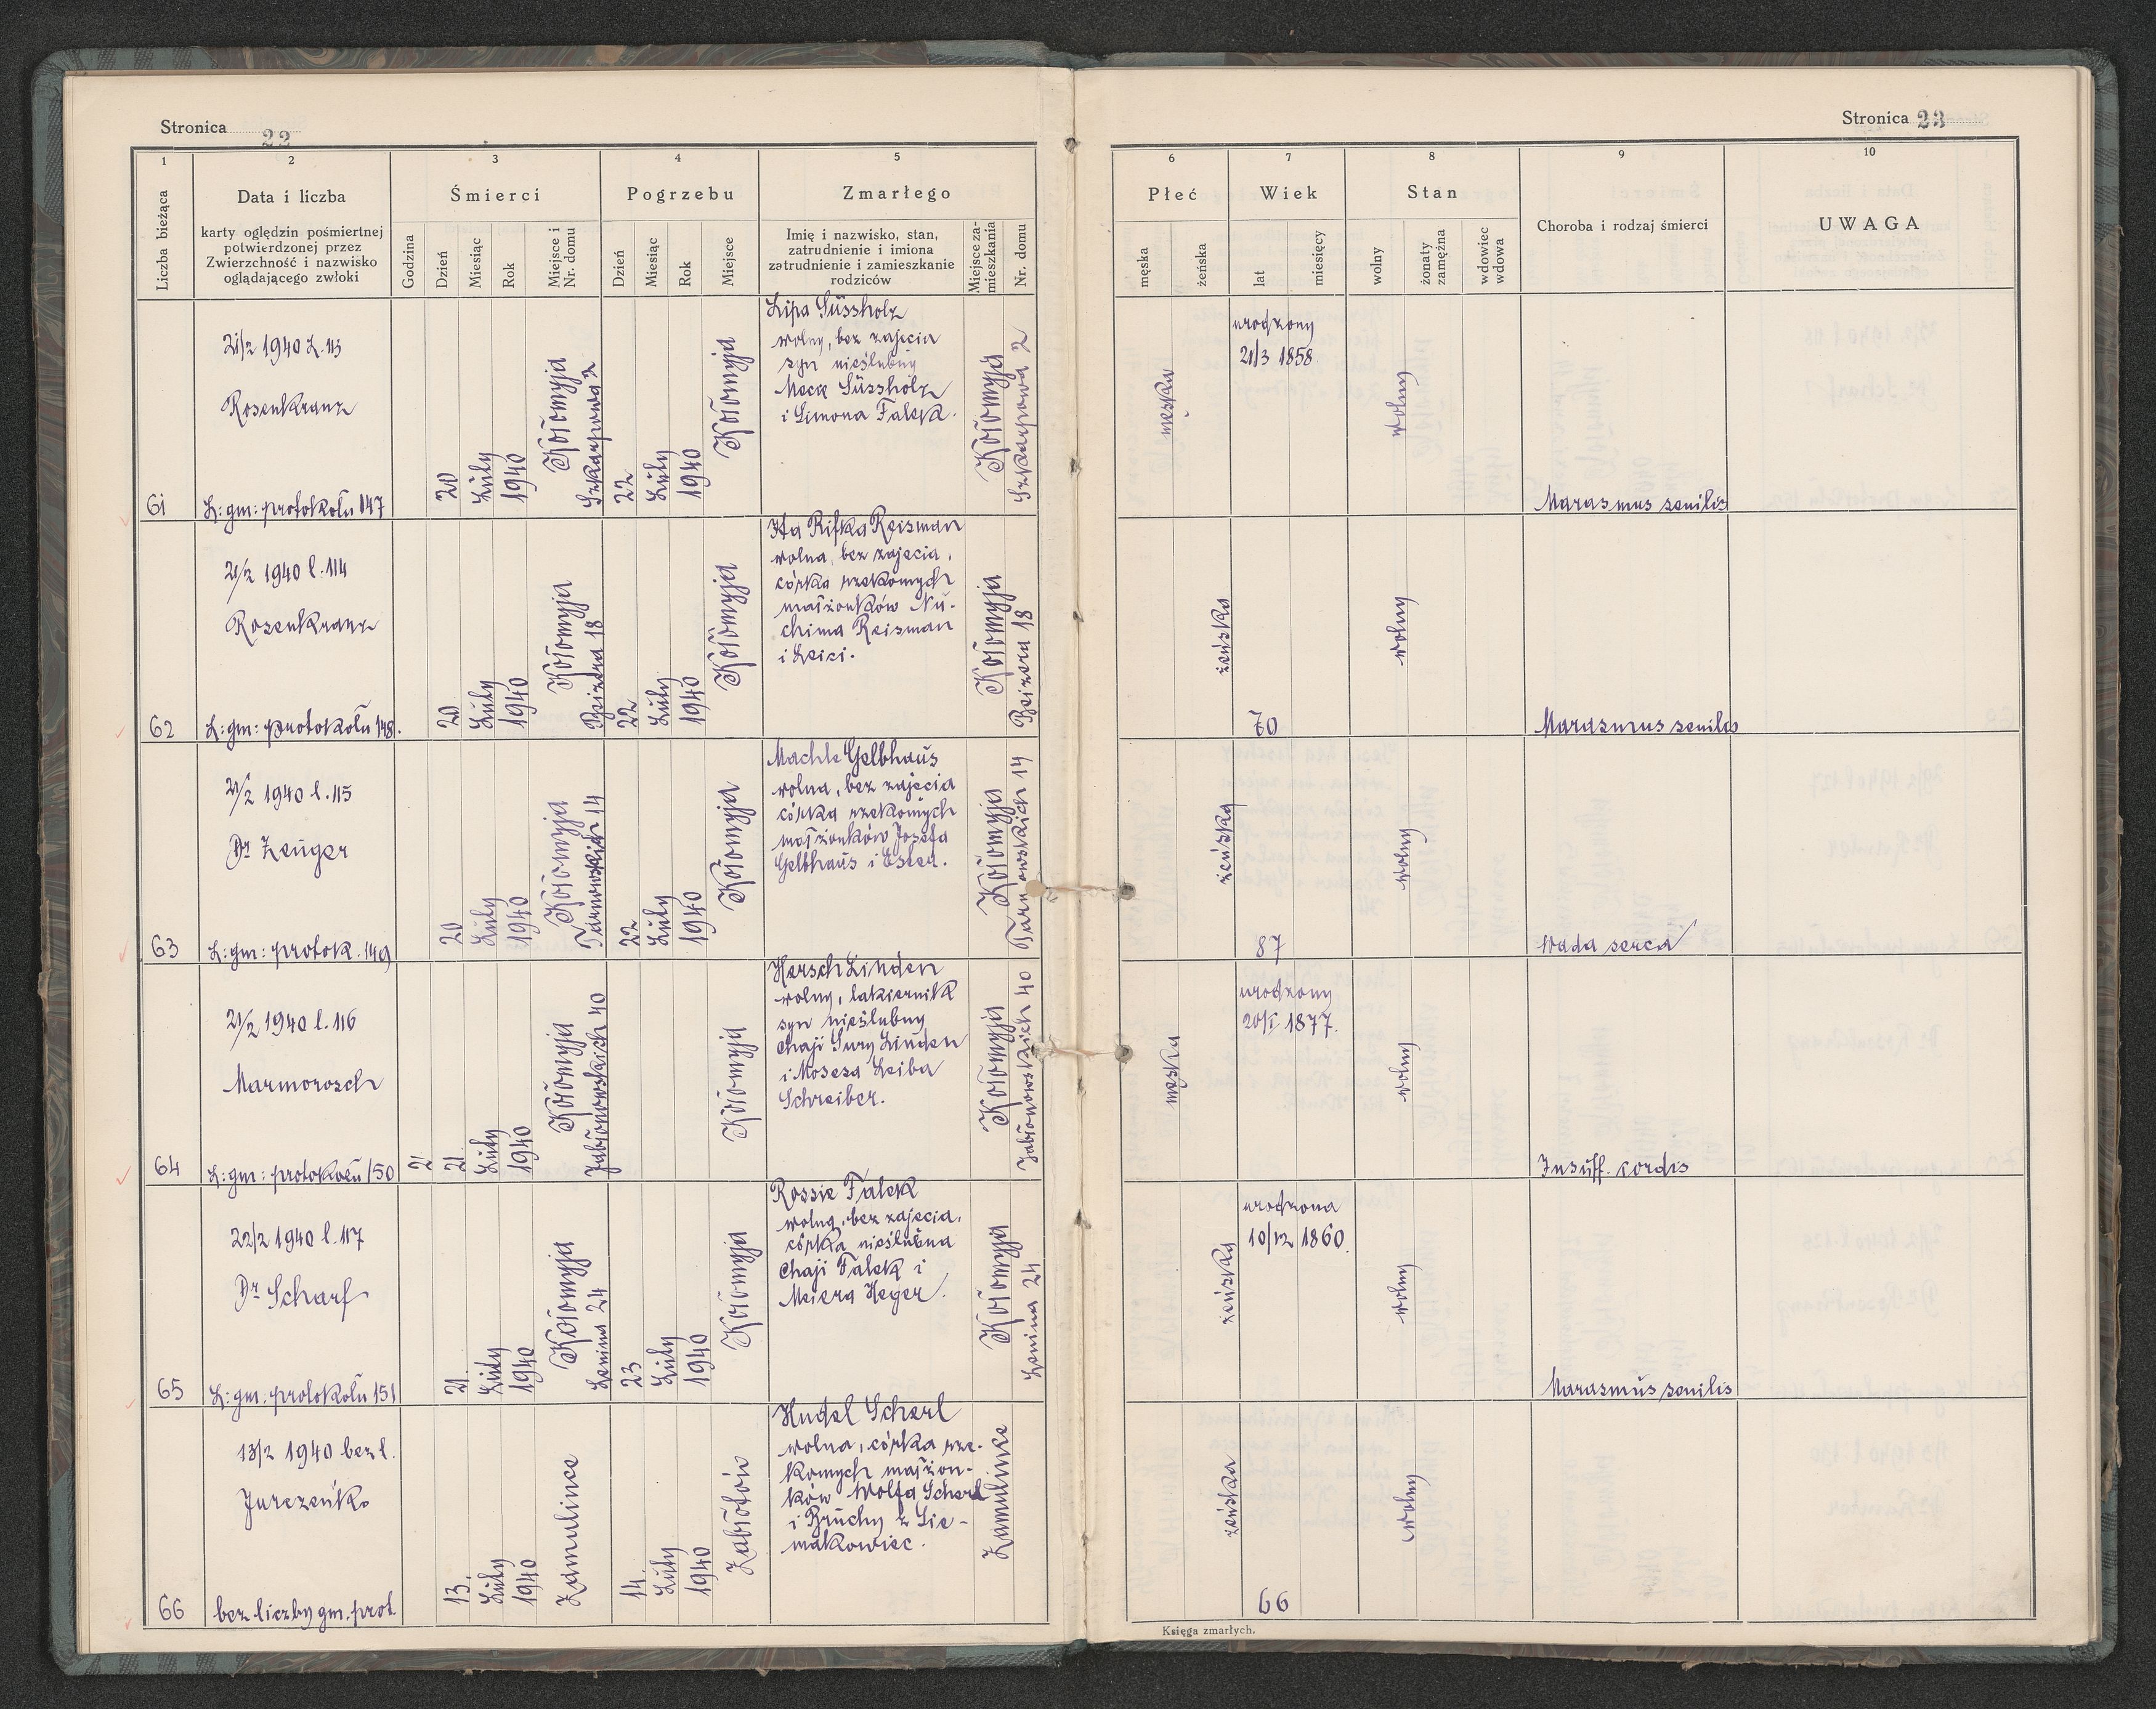 Stronica 22
1
2
3
4
5
Liczba bieżąca
Data i liczba
karty oględzin pośmiertnej
potwierdzonej przez
Zwierzchność i nazwisko
oglądającego zwłoki
Śmierci
Godzina
Dzień
Miesiąc
Rok
Miejsce i
Nr. domu
Pogrzebu
Dzień
Miesiąc
Rok
Miejsce
Zmarłego
Imię i nazwisko, stan,
zatrudnienie i imiona
zatrudnienie i zamieszkanie
rodziców
Miejsce za-
mieszkania
Nr. domu
61
21/2 1940 L. 113
Rosenkranz
L: gm: protokołu 147
20
Luty
1940
Kołomyja
Szkarpowa 2
22
Luty
1940
Kołomyja
Lipa Süssholz
wolny, bez zajęcia
syn nieślubny
Süssholz
i Simona Falek.
Kołomyja
Szkarpowa 2
62
21/2 1940 l. 114
Rosenkranz
L: gm: protokołu 148.
20
Luty
1940
Kołomyja
Reizera 18
22
Luty
1940
Kołomyja
Ita Rifka Reisman
wolna, bez zajęcia,
córka rzekomych
małżonków Nu-
chima Reisman
i Leici.
Kołomyja
Reizera 18
63
21/2 1940 l. 115
Dr Zenger
L: gm: protok. 149
20
Luty
1940
Kołomyja
Tarnowskich 14
22
Luty
1940
Kołomyja
Machle Gelbhaus
wolna, bez zajęcia
córka rzekomych
małżonków Josefa
Gelbhaus i Ester.
Kołomyja
Tarnowskich 14
64
21/2 1940 l. 116
Marmorosch
L: gm: protokołu 150
2
21
Luty
1940
Kołomyja
Jabłonowskich 40
Kołomyja
Hersch Linden
wolny, lakiernik
syn nieślubny
Chaji Sury Linden
i Mosesa Leiba
Schreiber.
Kołomyja
Jabłonowskich 40
65
22/2 1940 l. 117
Dr Scharf
L: gm. protokołu 151
21
Luty
1940
Kołomyja
Lenina 24
23
Luty
1940
Kołomyja
Rossie Falek
wolna, bez zajęcia,
córka nieślubna
Chaji Falek i
Meiera Heger.
Kołomyja
Lenina 24
66
13/2 1940 bez l.
Jurczeńko
bez liczby gm. prot.
13.
Luty
1940
Zamulince
14.
Luty
1940
Zabłotów
Hudel Scherl
wolna, córka rze-
komych małżon-
ków Wolfa Scherl
i Bruchy z Sie-
makowiec.
Zamulince
Stronica 23
6
7
8
9
10
Płeć
męska
żeńska
Wiek
lat
miesięcy
Stan
wolny
żonaty
zamężna
wdowiec
wdowa
Choroba i rodzaj śmierci
UWAGA
męska
urodzony
21/3 1858
wolny
Marasmus senilis
żeńska
70
wolny
Marasmus senilis
żeńska
87
wolny
Wada serca
męska
urodzony
20/I 1877.
wolny
Insuff. cordis
żeńska
urodzona
10/12 1860.
wolny
Marasmus senilis
żeńska
66
wolny
Księga zmarłych.